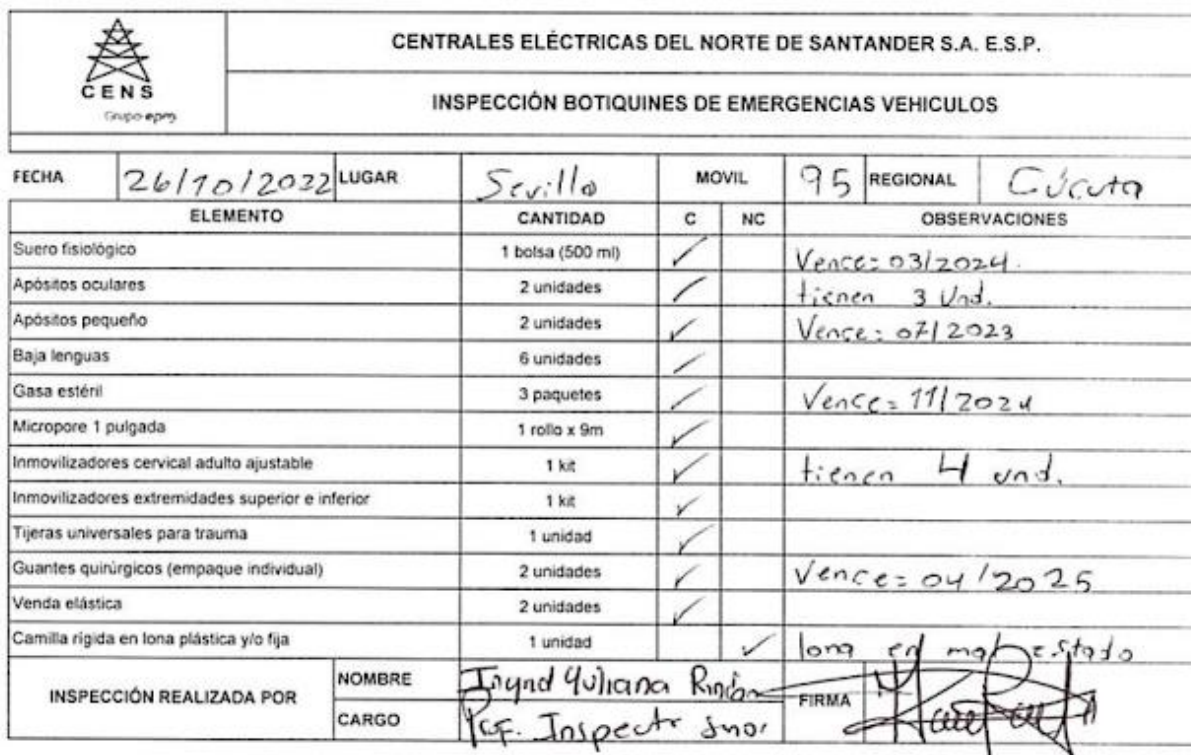 CENS
Grupo·epm
CENTRALES ELÉCTRICAS DEL NORTE DE SANTANDER S.A. E.S.P.
INSPECCIÓN BOTIQUINES DE EMERGENCIAS VEHICULOS
FECHA 26/10/2022 LUGAR Sevilla MOVIL 95 REGIONAL Cúcuta
ELEMENTO CANTIDAD C NC OBSERVACIONES
Suero fisiológico 1 bolsa (500 ml) ✓ Vence: 03/2024.
Apósitos oculares 2 unidades ✓ tienen 3 Und.
Apósitos pequeño 2 unidades ✓ Vence: 07/2023
Baja lenguas 6 unidades ✓
Gasa estéril 3 paquetes ✓ Vence: 11/2024
Micropore 1 pulgada 1 rollo x 9m ✓
Inmovilizadores cervical adulto ajustable 1 kit ✓ tienen 4 und.
Inmovilizadores extremidades superior e inferior 1 kit ✓
Tijeras universales para trauma 1 unidad ✓
Guantes quirúrgicos (empaque individual) 2 unidades ✓ Vence: 04/2025
Venda elástica 2 unidades ✓
Camilla rígida en lona plástica y/o fija 1 unidad ✓ lona en mal estado
INSPECCIÓN REALIZADA POR
NOMBRE Ingrid Yuliana Rincón
CARGO Inspector
FIRMA